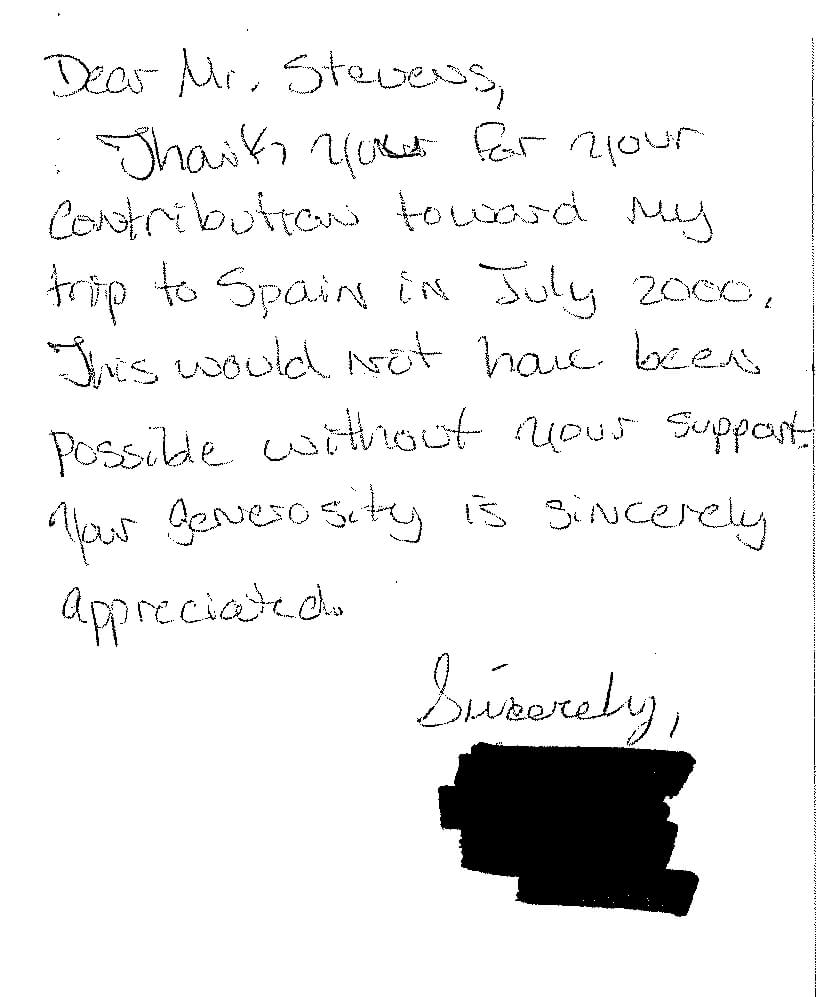 Dear Mr. Stevens,
Thank you for your
Contribution toward my
trip to Spain in July 2000.
This would not have been
possible without your support.
Your generosity is sincerely
appreciated.
Sincerely,